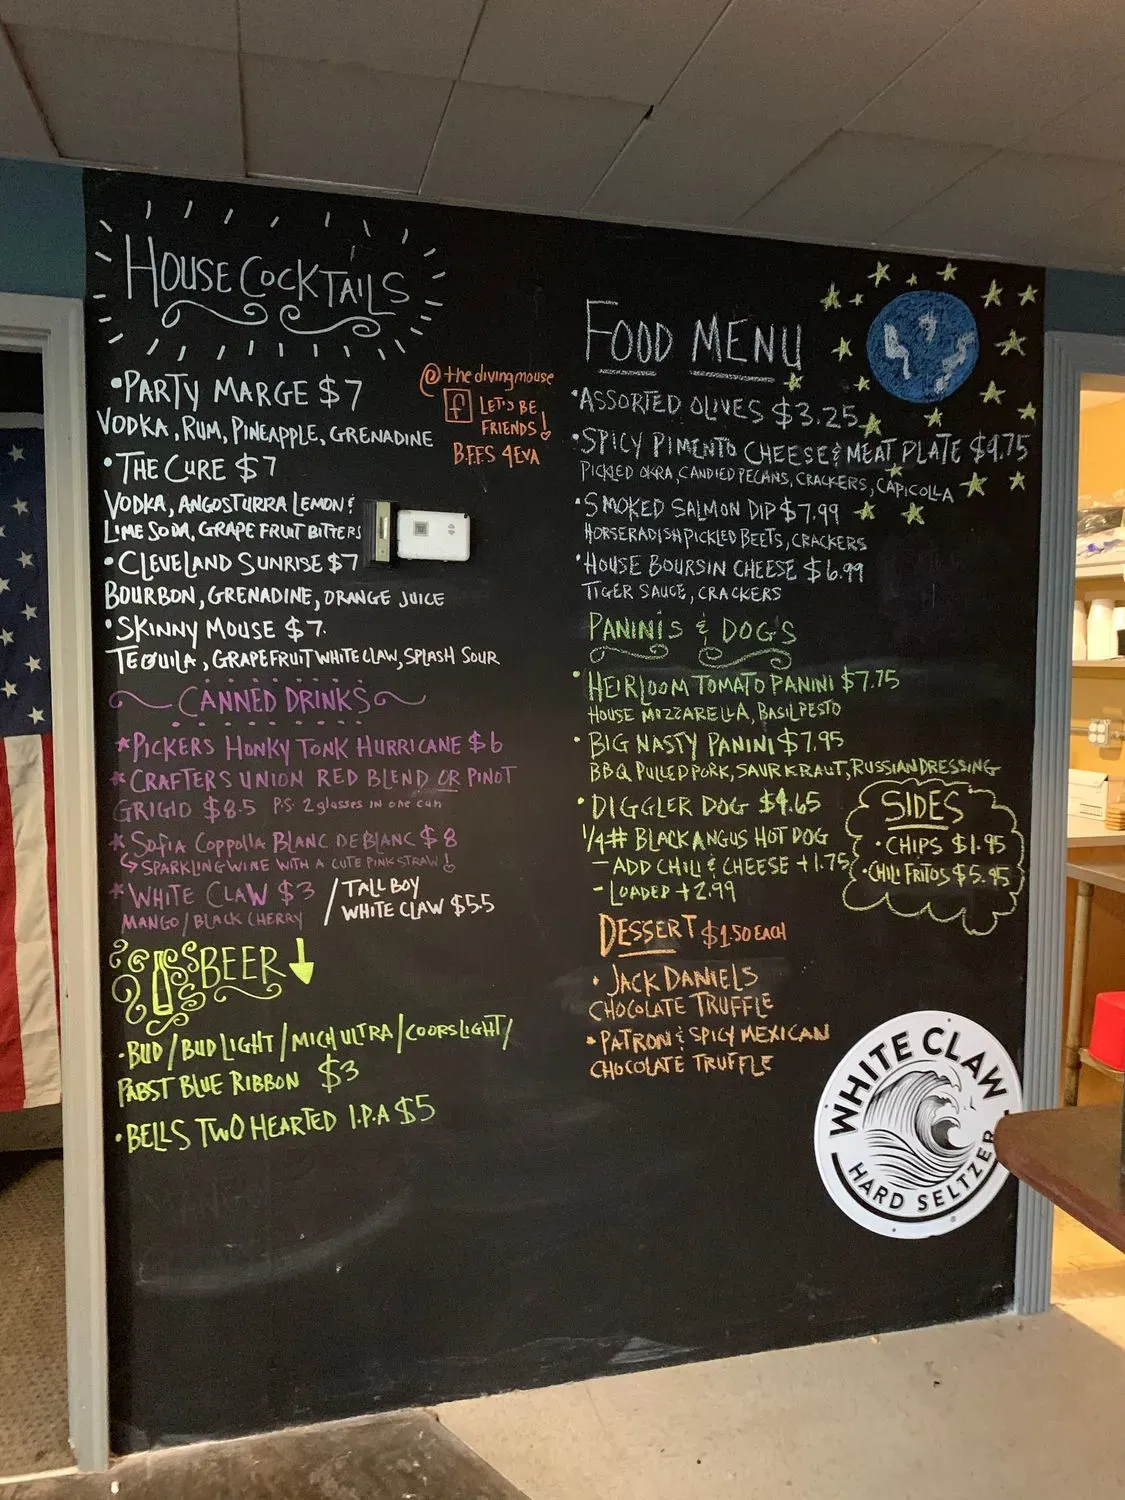 HOUSE COCKTAILS
•PARTY MARGE $7
VODKA, RUM, PINEAPPLE, GRENADINE
•THE CURE $7
VODKA, ANGOSTURRA LEMON &
LIME SODA, GRAPE FRUIT BITTERS
•CLEVELAND SUNRISE $7
BOURBON, GRENADINE, ORANGE JUICE
•SKINNY MOUSE $7.
TEQUILA, GRAPEFRUIT WHITE CLAW, SPLASH SOUR
@thedivingmouse
f LET'S BE
FRIENDS!
BFFS 4EVA
CANNED DRINKS
*PICKERS HONKY TONK HURRICANE $6
*CRAFTERS UNION RED BLEND OR PINOT
GRIGIO $8.5 P.S. 2 glasses in one can
*SOFIA COPPOLLA BLANC DE BLANC $8
↳SPARKLING WINE WITH A CUTE PINK STRAW!
*WHITE CLAW $3 / TALL BOY
MANGO/BLACK CHERRY WHITE CLAW $5.5
BEER
•BUD/BUD LIGHT/MICH ULTRA/COORS LIGHT/
PABST BLUE RIBBON $3
•BELLS TWO HEARTED I.P.A $5
FOOD MENU
•ASSORTED OLIVES $3.25
•SPICY PIMENTO CHEESE & MEAT PLATE $9.75
PICKLED OKRA, CANDIED PECANS, CRACKERS, CAPICOLLA
•SMOKED SALMON DIP $7.99
HORSERADISH PICKLED BEETS, CRACKERS
•HOUSE BOURSIN CHEESE $6.99
TIGER SAUCE, CRACKERS
PANINI'S & DOG'S
•HEIRLOOM TOMATO PANINI $7.75
HOUSE MOZZARELLA, BASIL PESTO
•BIG NASTY PANINI $7.95
BBQ PULLED PORK, SAURKRAUT, RUSSIAN DRESSING
•DIGGLER DOG $4.65
1/4# BLACK ANGUS HOT DOG
- ADD CHILI & CHEESE +1.75
- LOADED +2.99
SIDES
•CHIPS $1.95
•CHILI FRITOS $5.95
DESSERT $1.50 EACH
•JACK DANIELS
CHOCOLATE TRUFFLE
•PATRON & SPICY MEXICAN
CHOCOLATE TRUFFLE
WHITE CLAW
HARD SELTZER